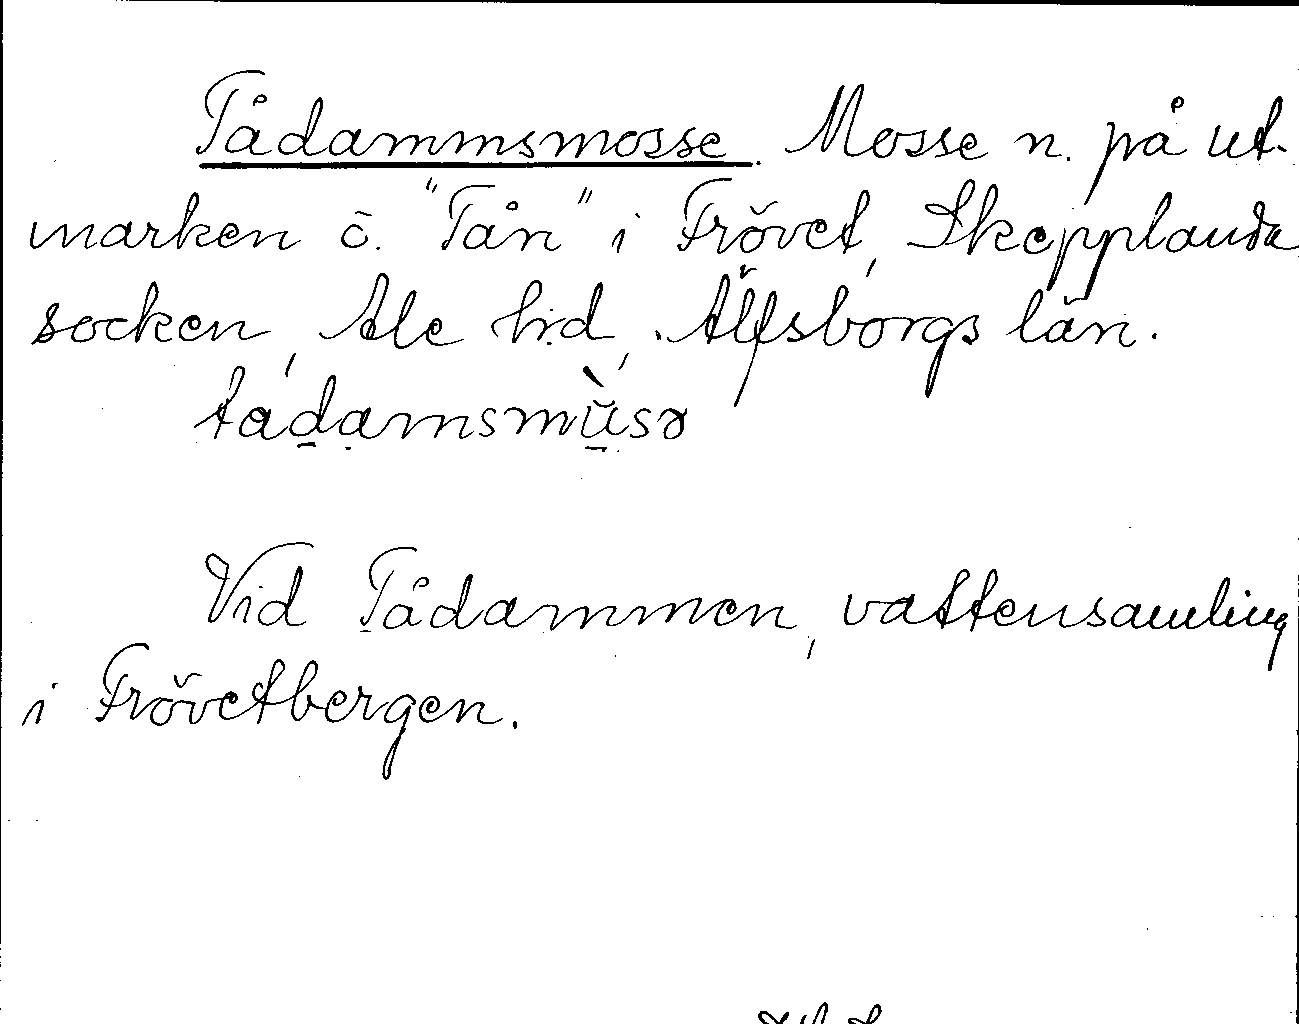 Tådammsmosse. Mosse n. på ut-
marken ö. "Tån" i Frövet, Skepplanda
socken, Ale hd, Älfsborgs län.

Vid Tådammen, vattensamling
i Frövetbergen.